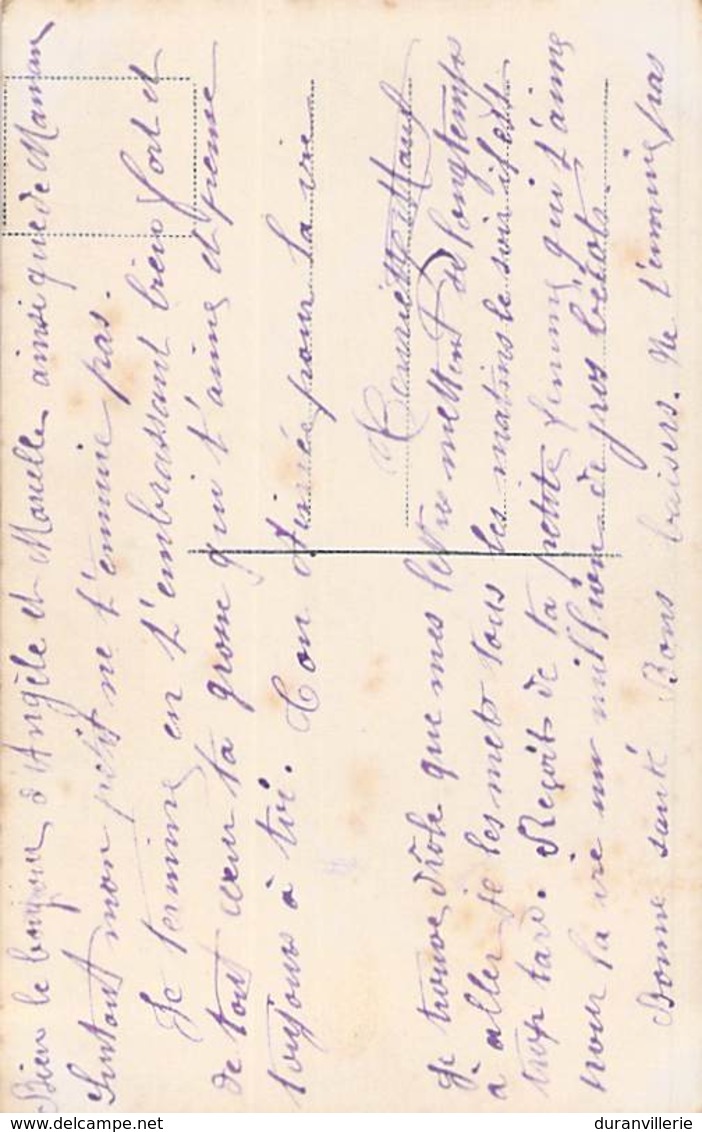 Bien le bonjour d'Angèle et Marcelle ainsi que de Maman
Surtout mon petit ne t'ennuie pas.
Je termine en t'embrassant bien fort et
de tout cœur ta grosse qui t'aime et pense
toujours à toi. Ton aimée pour la vie
Henriette
Je trouve drôle que mes lettres mettent de longtemps
à aller je les mets tous les matins le soir il est
trop tard. Reçoit de ta petite femme qui t'aime
pour la vie un million de gros bécots.
Bonne santé Bons baisers. Ne t'ennuie pas
duranvillerie